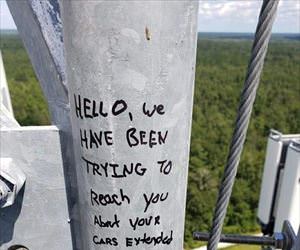 HELLO, we
HAVE BEEN
TRYING TO
Reach you
About your
CARS Extended